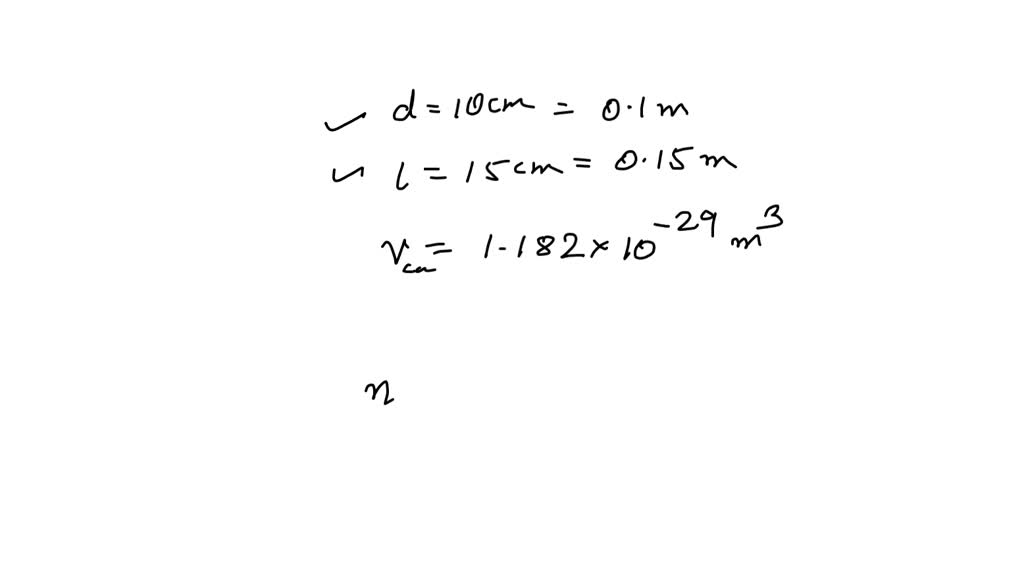 ✓ d = 10 cm = 0.1 m
✓ l = 15 cm = 0.15 m
V_cu = 1.182 × 10^-29 m^3
n